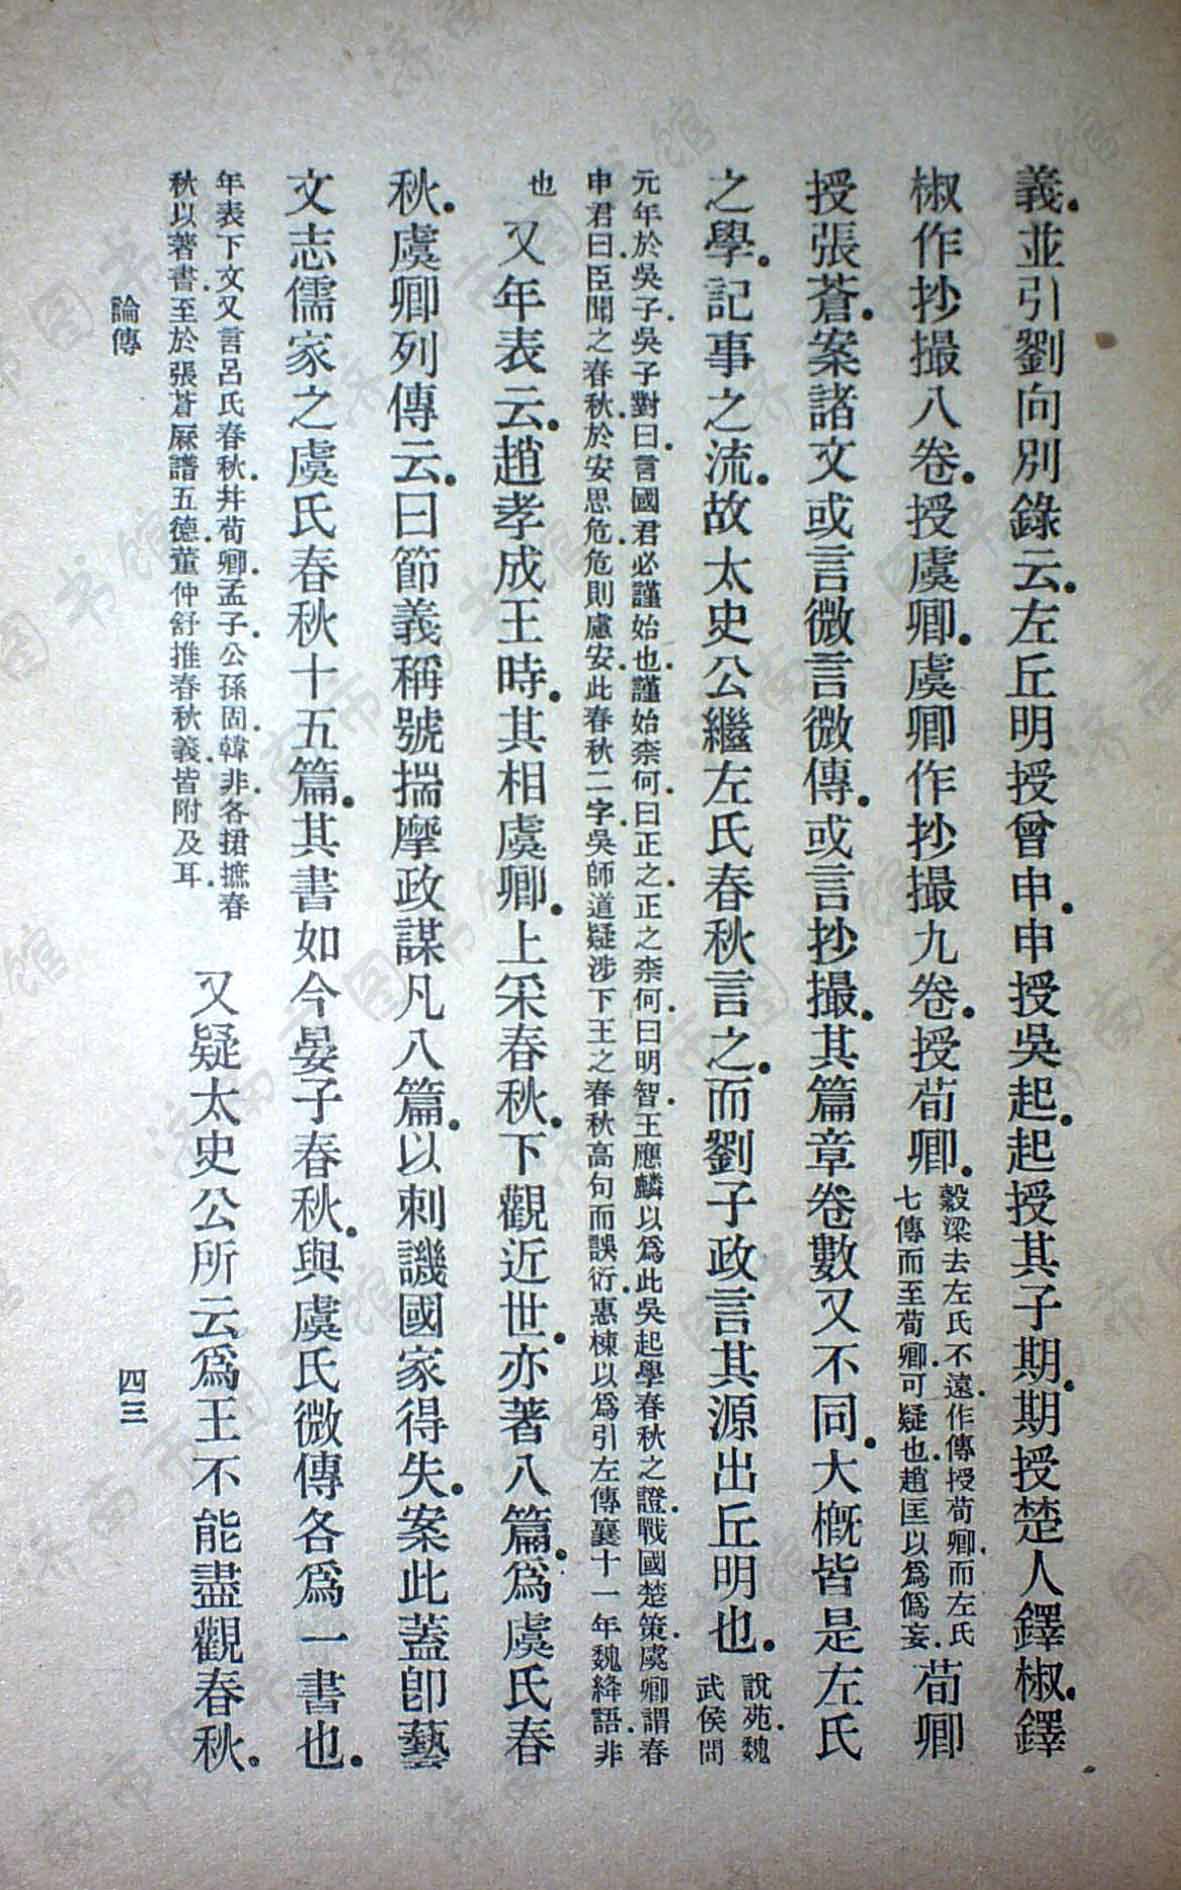 義．並引劉向別錄云．左丘明授曾申．申授吳起．起授其子期．期授楚人鐸椒．鐸
椒作抄撮八卷．授虞卿．虞卿作抄撮九卷．授荀卿．
穀梁去左氏不遠．作傳授荀卿．而左氏
七傳而至荀卿．可疑也．趙匡以爲僞妄．
荀卿
授張蒼．案諸文或言微言微傳．或言抄撮．其篇章卷數又不同．大槪皆是左氏
之學．記事之流．故太史公繼左氏春秋言之．而劉子政言其源出丘明也．
說苑．魏
武侯問
元年於吳子．吳子對曰．言國君必謹始也．謹始柰何．曰正之．正之柰何．曰明智．王應麟以爲此吳起學春秋之證．戰國楚策．虞卿謂春
申君曰．臣聞之春秋．於安思危．危則慮安．此春秋二字．吳師道疑涉下王之春秋高句而誤衍．惠棟以爲引左傳襄十一年魏絳語．非
也
又年表云．趙孝成王時．其相虞卿．上采春秋．下觀近世．亦著八篇．爲虞氏春
秋．虞卿列傳云．曰節義稱號揣摩政謀凡八篇．以刺譏國家得失．案此蓋卽藝
文志儒家之虞氏春秋十五篇．其書如今晏子春秋．與虞氏微傳各爲一書也．
年表下文又言呂氏春秋．幷荀卿．孟子．公孫固．韓非．各捃摭春
秋以著書．至於張蒼厤譜五德．董仲舒推春秋義．皆附及耳．
又疑太史公所云爲王不能盡觀春秋．
論傳
四三